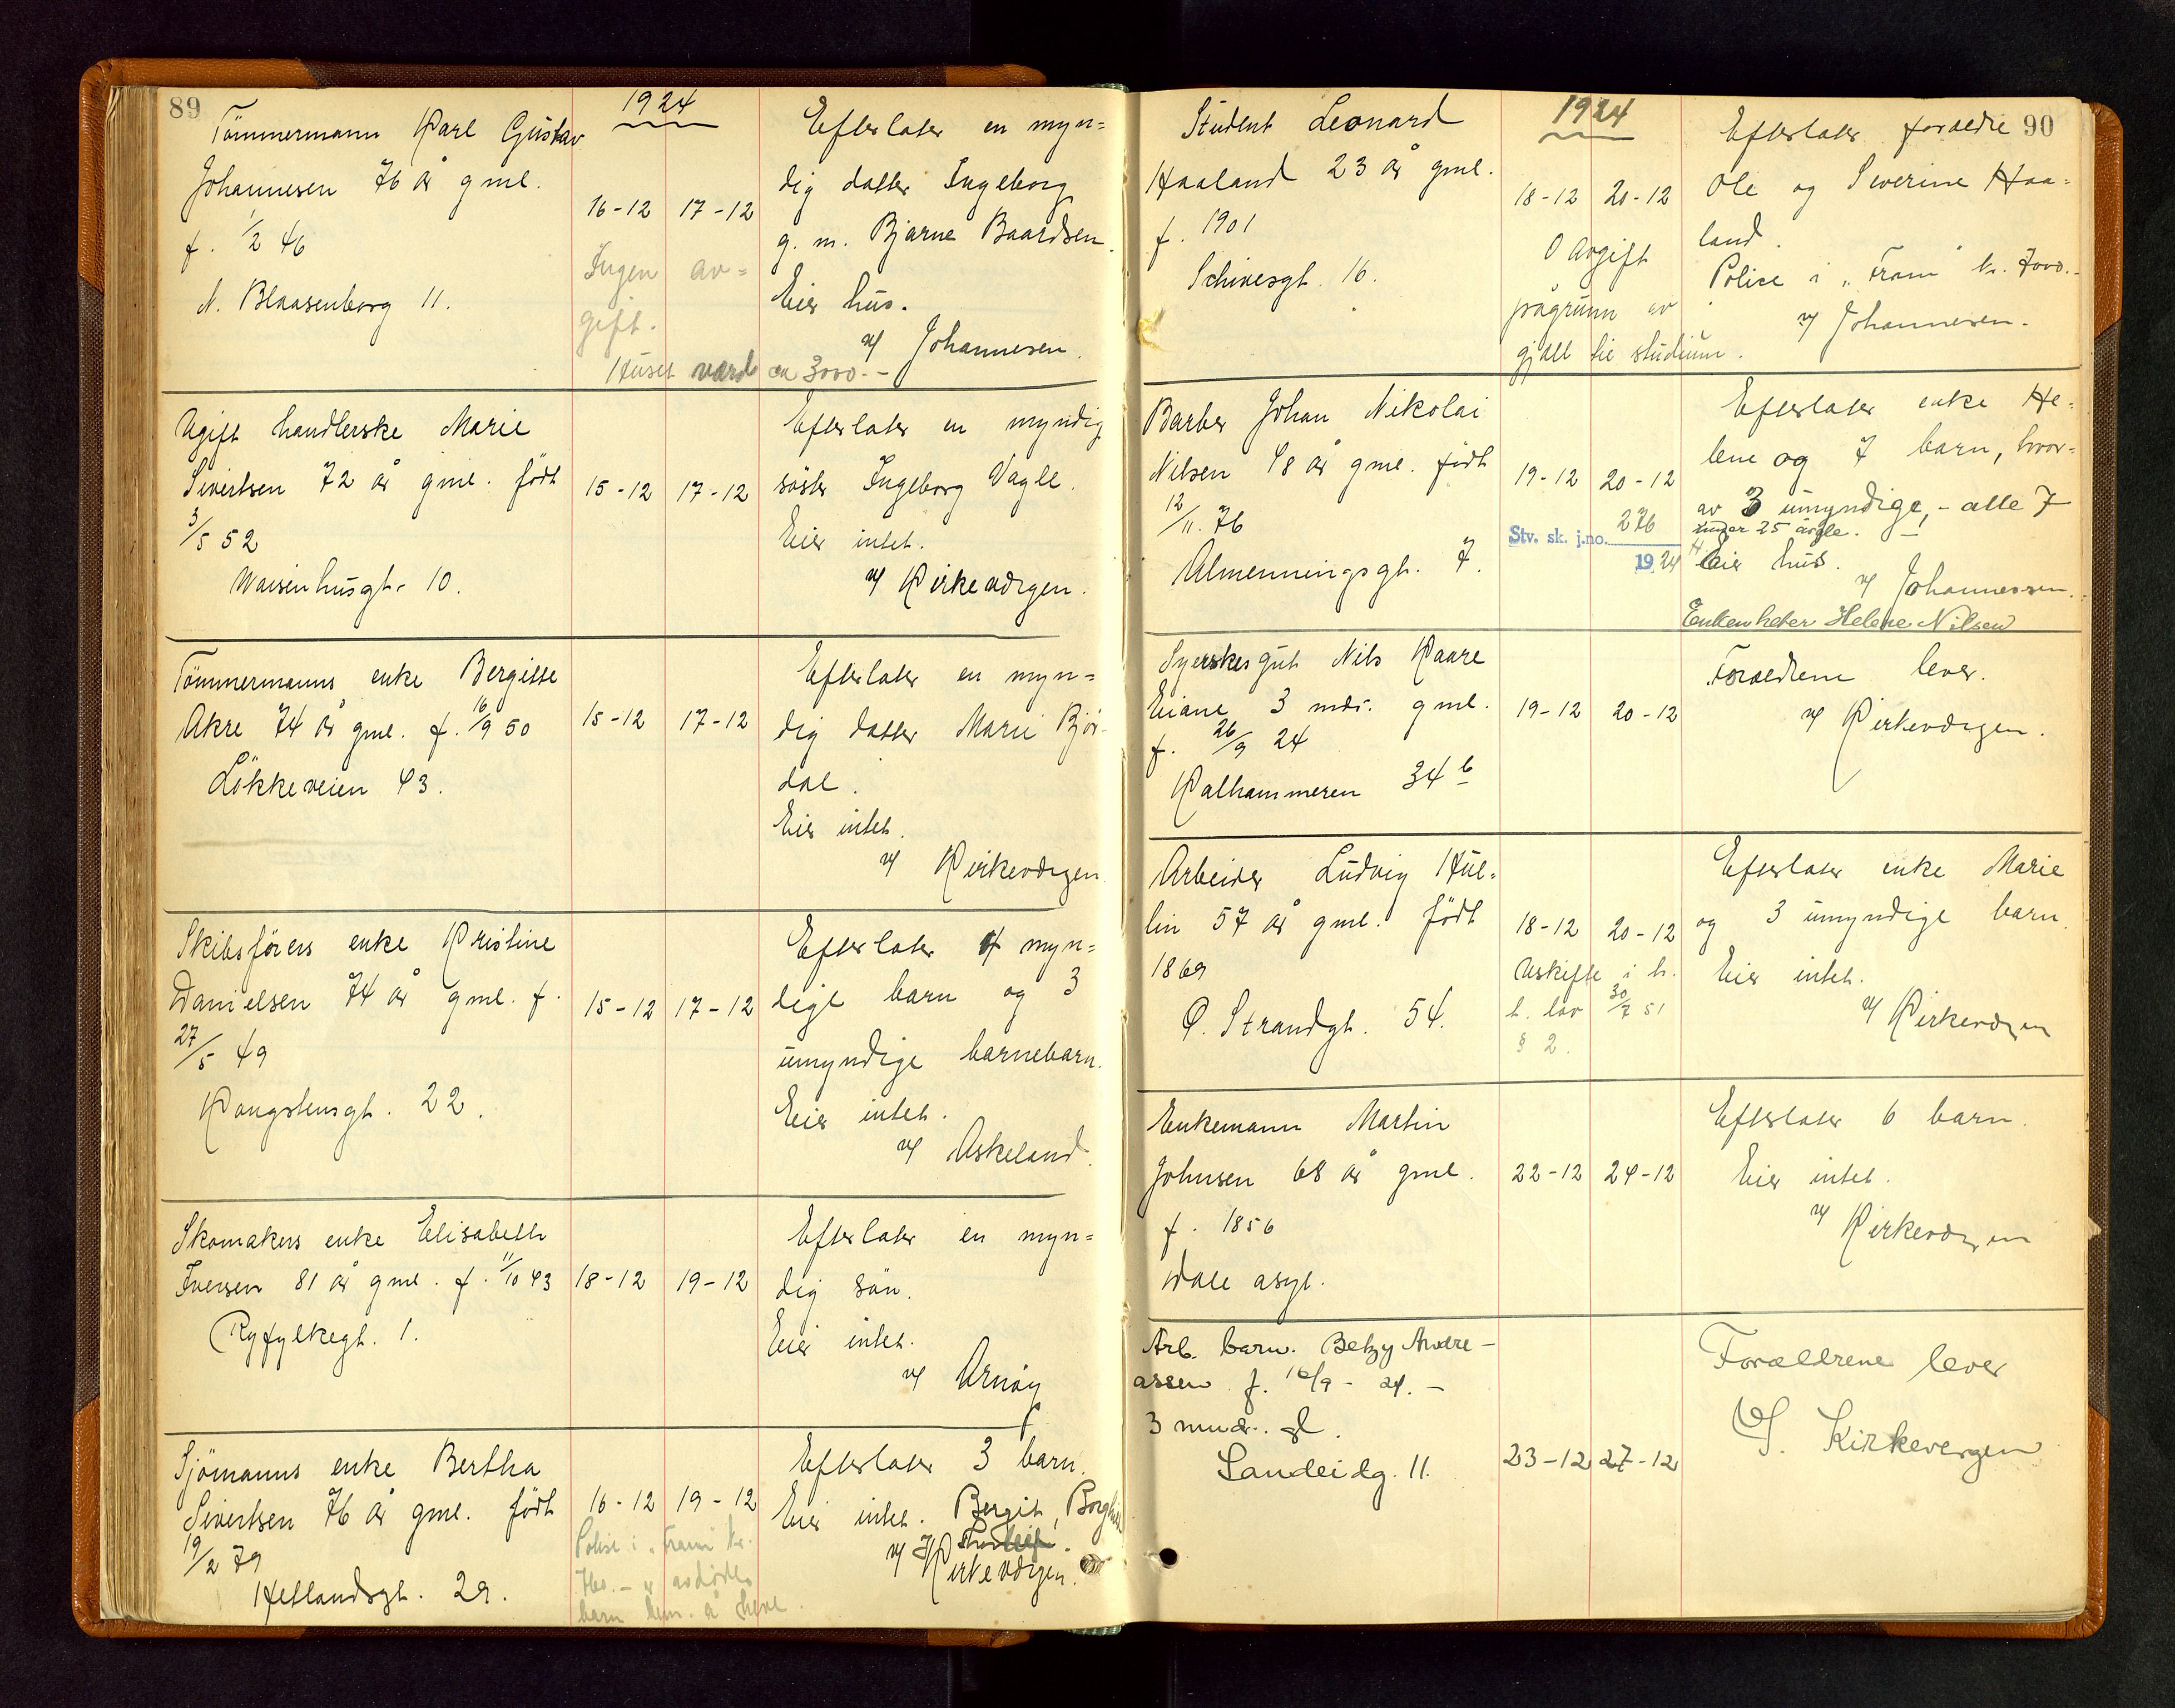 89
1924
Tömmermann Karl Gustav
Johannesen 76 år gml.
f. 1/2 46
N. Blaasenborg 11.
16-12 17-12
Ingen av=
gift.
Huset verd ca 3000.-
Efterlater en myn=
dig datter Ingeborg
g. m. Bjarne Baardsen.
Eier hus.
v/ Johannesen.
Ugift handlerske Marie
Sivertsen 72 år gml. född
3/5 52
Waisenhusgt. 10.
15-12 17-12
Efterlater en myndig
söster Ingeborg Vagle.
Eier intet.
v/ Kirkevergen.
Tömmermanns enke Bergitte
Akre 74 år gml. f. 16/9 50
Lökkeveien 43.
15-12 17-12
Efterlater en myn=
dig datter Marie Björ-
dal.
Eier intet.
v/ Kirkevergen
Skibsförers enke Kristine
Danielsen 74 år gml. f.
27/5 49
Kongstensgt. 22.
15-12 17-12
Efterlater 4 myn=
dige barn og 3
umyndige barnebarn.
Eier intet.
v/ Askeland.
Skomakers enke Elisabeth
Iversen 81 år gml. f. 11/10 43
Ryfylkegt. 1.
18-12 19-12
Efterlater en myn=
dig sön.
Eier intet.
v/ Arnöy
Sjömanns enke Bertha
Sivertsen 76 år gml. född
19/2 79
Hetlandsgt. 29.
16-12 19-12
Police i "Fram" kr.
barn
Efterlater 3 barn.
Eier intet. Bergit, Borghild
v/ Kirkevergen.
90
1924
Student Leonard
Haaland 23 år gml.
f. 1901
Schivesgt. 16.
18-12 20-12
0 avgift
pågrunn av
gjeld til studium.
Efterlater foreldre
Ole og Severine Haa=
land.
Police i "Fram" kr. 7000.-
v/ Johannesen.
Barber Johan Nikolai
Nilsen 48 år gml. född
12/11. 76
Almenningsgt. 7.
19-12 20-12
Stv. sk. j.no. 276
1924
Efterlater enke He=
lene og 7 barn, hvor=
av 3 umyndige, - alle 7
under 25 år gle.
Eier hus.
v/ Johannessen.
Enken heter Helene Nilsen
Syerskes gut Nils Kaare
Eiane 3 mdr. gml.
f. 26/9 24
Kalhammeren 34 b
19-12 20-12
Foreldrene lever.
v/ Kirkevergen.
Arbeider Ludvig Hul=
lin 57 år gml. född
1869
Ö. Strandgt. 54.
18-12 20-12
Uskifte i h.
t. lov 30/7 51
§ 2.
Efterlater enke Marie
og 3 umyndige barn.
Eier intet.
v/ Kirkevergen
Enkemann Martin
Johnsen 68 år gml.
f. 1856
Dale asyl.
22-12 24-12
Efterlater 6 barn.
Eier intet.
v/ Kirkevergen
Arb. barn. Betzy Andre-
assen f. 16/9 - 24. -
3 mndr. gl.
Sandeidg. 11.
23-12 27-12
Forældrene lever
Kirkevergen